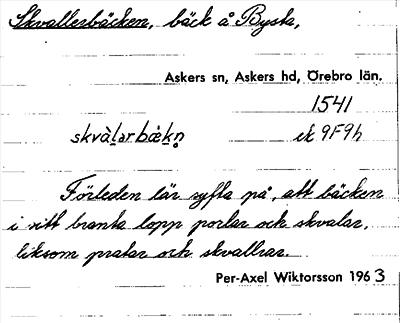 Skvallerbäcken, bäck å Bysta,
Askers sn, Askers hd, Örebro län.
1541
skvàḷarbækn̥ ek 9F9h
Förleden lär syfta på, att bäcken
i sitt branta lopp porlar och skvalar,
liksom pratar och skvallrar.
Per-Axel Wiktorsson 1963